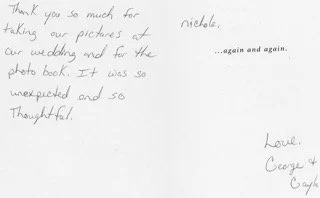 Thank you so much for
taking our pictures at
our wedding and for the
photo book. It was so
unexpected and so
Thoughtful.
nichole,
...again and again.
Love,
George &
Gayle